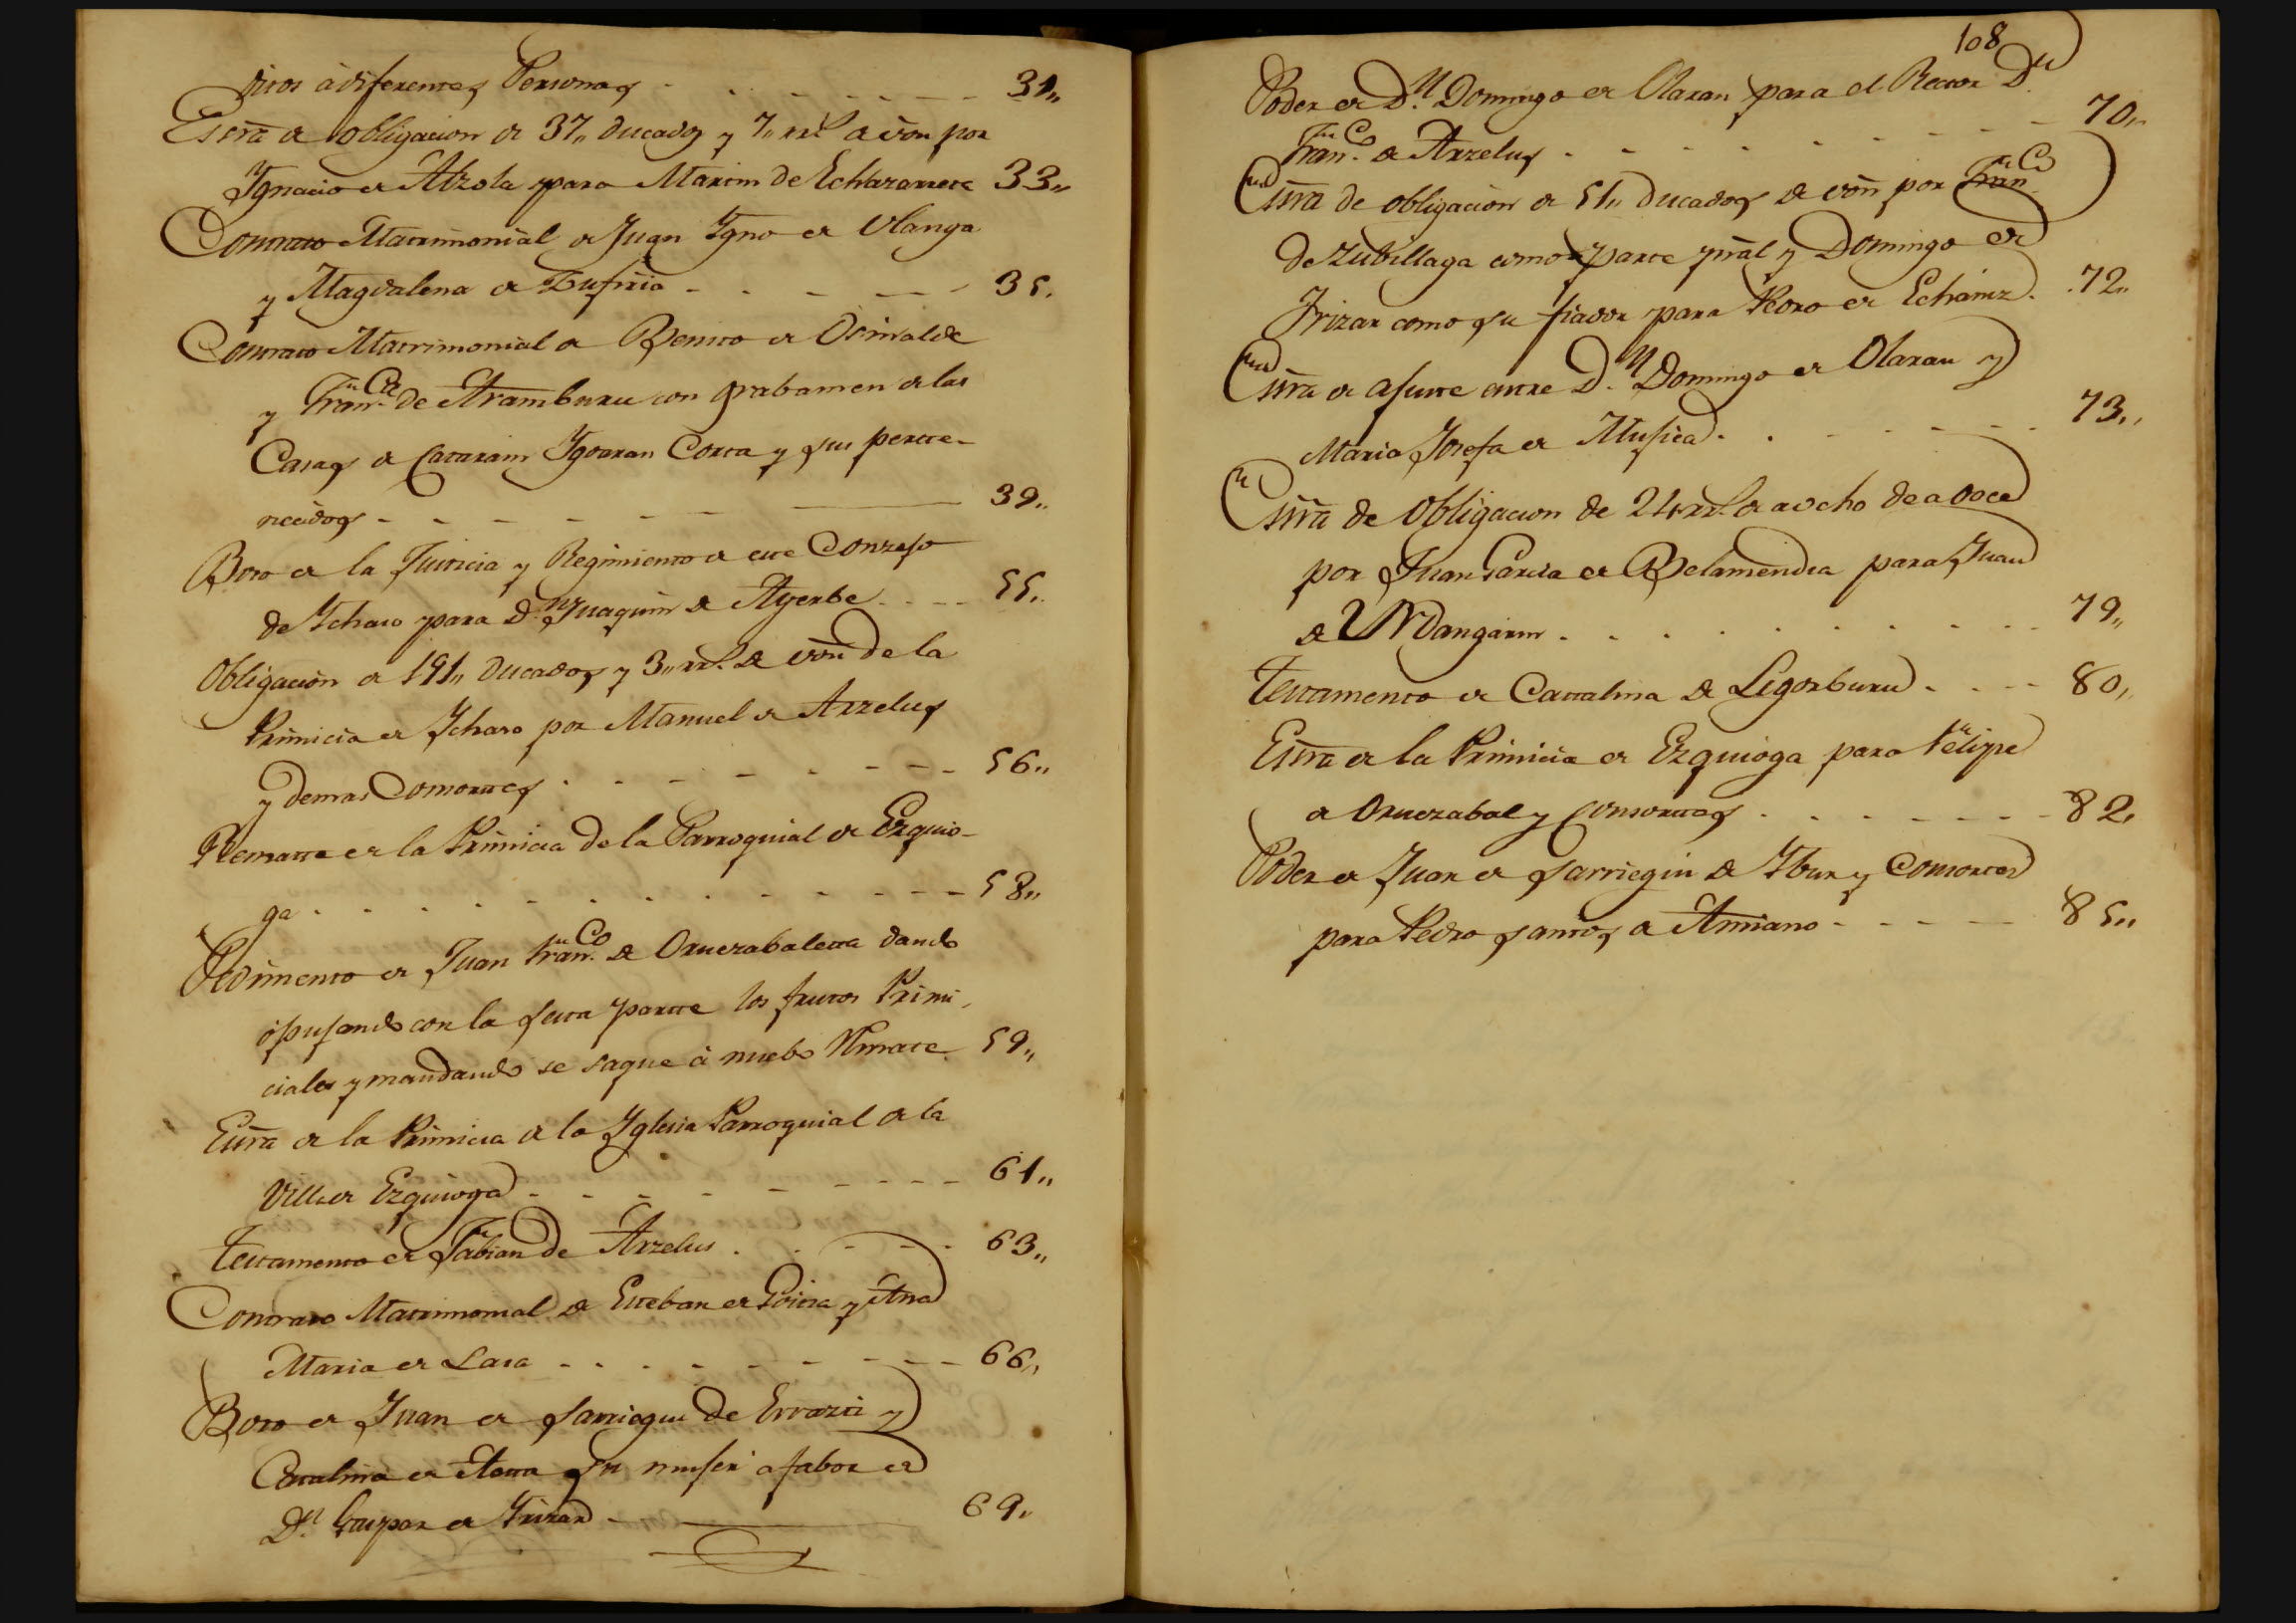 ditos à diferentes Personas - - - - - - 31,,
Essrã de obligacion de 37,, ducados y 7,, rrs de von por
Ygnacio de Alzola para Martin de Echazarreta 33,,
Contrato Matrimonial de Juan Ygno de Olanga
y Magdalena de Zufiria - - - - - 35.
Contrato Matrimonial de Benito de Osinalde
y Franca de Aramburu con grabamen de las
Casas de Catarain Ygaran Corta y sus perte-
necidos - - - - - - 39,,
Boto de la Justicia y Regimiento de este Conzejo
de Ychaso para Dn Juaquin de Ayerbe - - - - 55,,
Obligacion de 191,, ducados y 3,, rrs de von de la
Primicia de Ychaso por Manuel de Arzelus
y demas Consortes - - - - - - - 56,,
Rematte de la Primicia de la Parroquial de Ezquio-
ga - - - - - - - - - - 58,,
Pedimento de Juan Franco de Oruezabaleta dando
y pujando con la sesta partte los frutos Primi-
ciales y mandando se saque à nuebo Rmate 59,,
Essrã de la Primicia de la Yglesia Parroquial de la
Villa de Ezquioga - - - - - - - - 61,,
Testamento de Fabian de Arzelus - - - - - 63,,
Contrato Matrimonial de Esteban de Goitia y Ana
Maria de Lasa - - - - - - - - 66,,
Boto de Juan de Sarriegui de Errazti y
Catalina de su mujer a fabor de
Dn Gaspar de Yrizar - - - 69,,
108
Poder de Dn Domingo de Olaran para el Rector Dn
Franco de Arzelus - - - - - - - - 70,,
Essrã de obligacion de 51,, ducados de von por Franco
de Zubillaga como parte prãl y Domingo de
Yrizar como su fiador para Pedro de Echaniz - 72,,
Essrã de ajuste entre Dn Domingo de Olaran y
Maria Josefa de Mujica - - - - - - 73,,
Essrã de Obligacion de 24 rrs de a ocho de a doce
por Juan Garcia de Belamendia para Juan
de Urdangarin - - - - - - - - - 79,,
Testamento de Cattalina de Ligorburu - - - - 80,,
Essrã de la Primicia de Ezquioga para Felipe
de Oruezabal y Consorttes - - - - - - - 82,
Poder de Juan de Sarriegui de Ybur y Consortes
para Pedro Santos de Amiano - - - - - 85,,